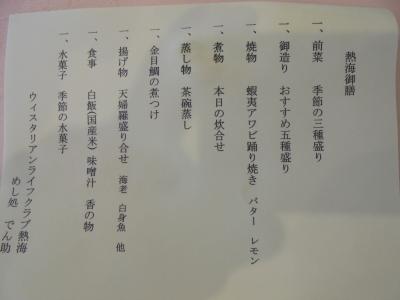 熱海御膳
一、前菜　季節の三種盛り
一、御造り　おすすめ五種盛り
一、焼物　蝦夷アワビ踊り焼き　バター　レモン
一、煮物　本日の炊合せ
一、蒸し物　茶碗蒸し
一、金目鯛の煮つけ
一、揚げ物　天婦羅盛り合せ　海老　白身魚　他
一、食事　白飯(国産米)　味噌汁　香の物
一、水菓子　季節の水菓子
ウィスタリアンライフクラブ熱海
めし処　でん助